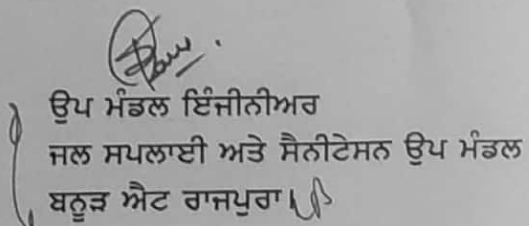 ਉਪ ਮੰਡਲ ਇੰਜੀਨੀਅਰ
ਜਲ ਸਪਲਾਈ ਅਤੇ ਸੈਨੀਟੇਸਨ ਉਪ ਮੰਡਲ
ਬਨੂੜ ਐਟ ਰਾਜਪੁਰਾ